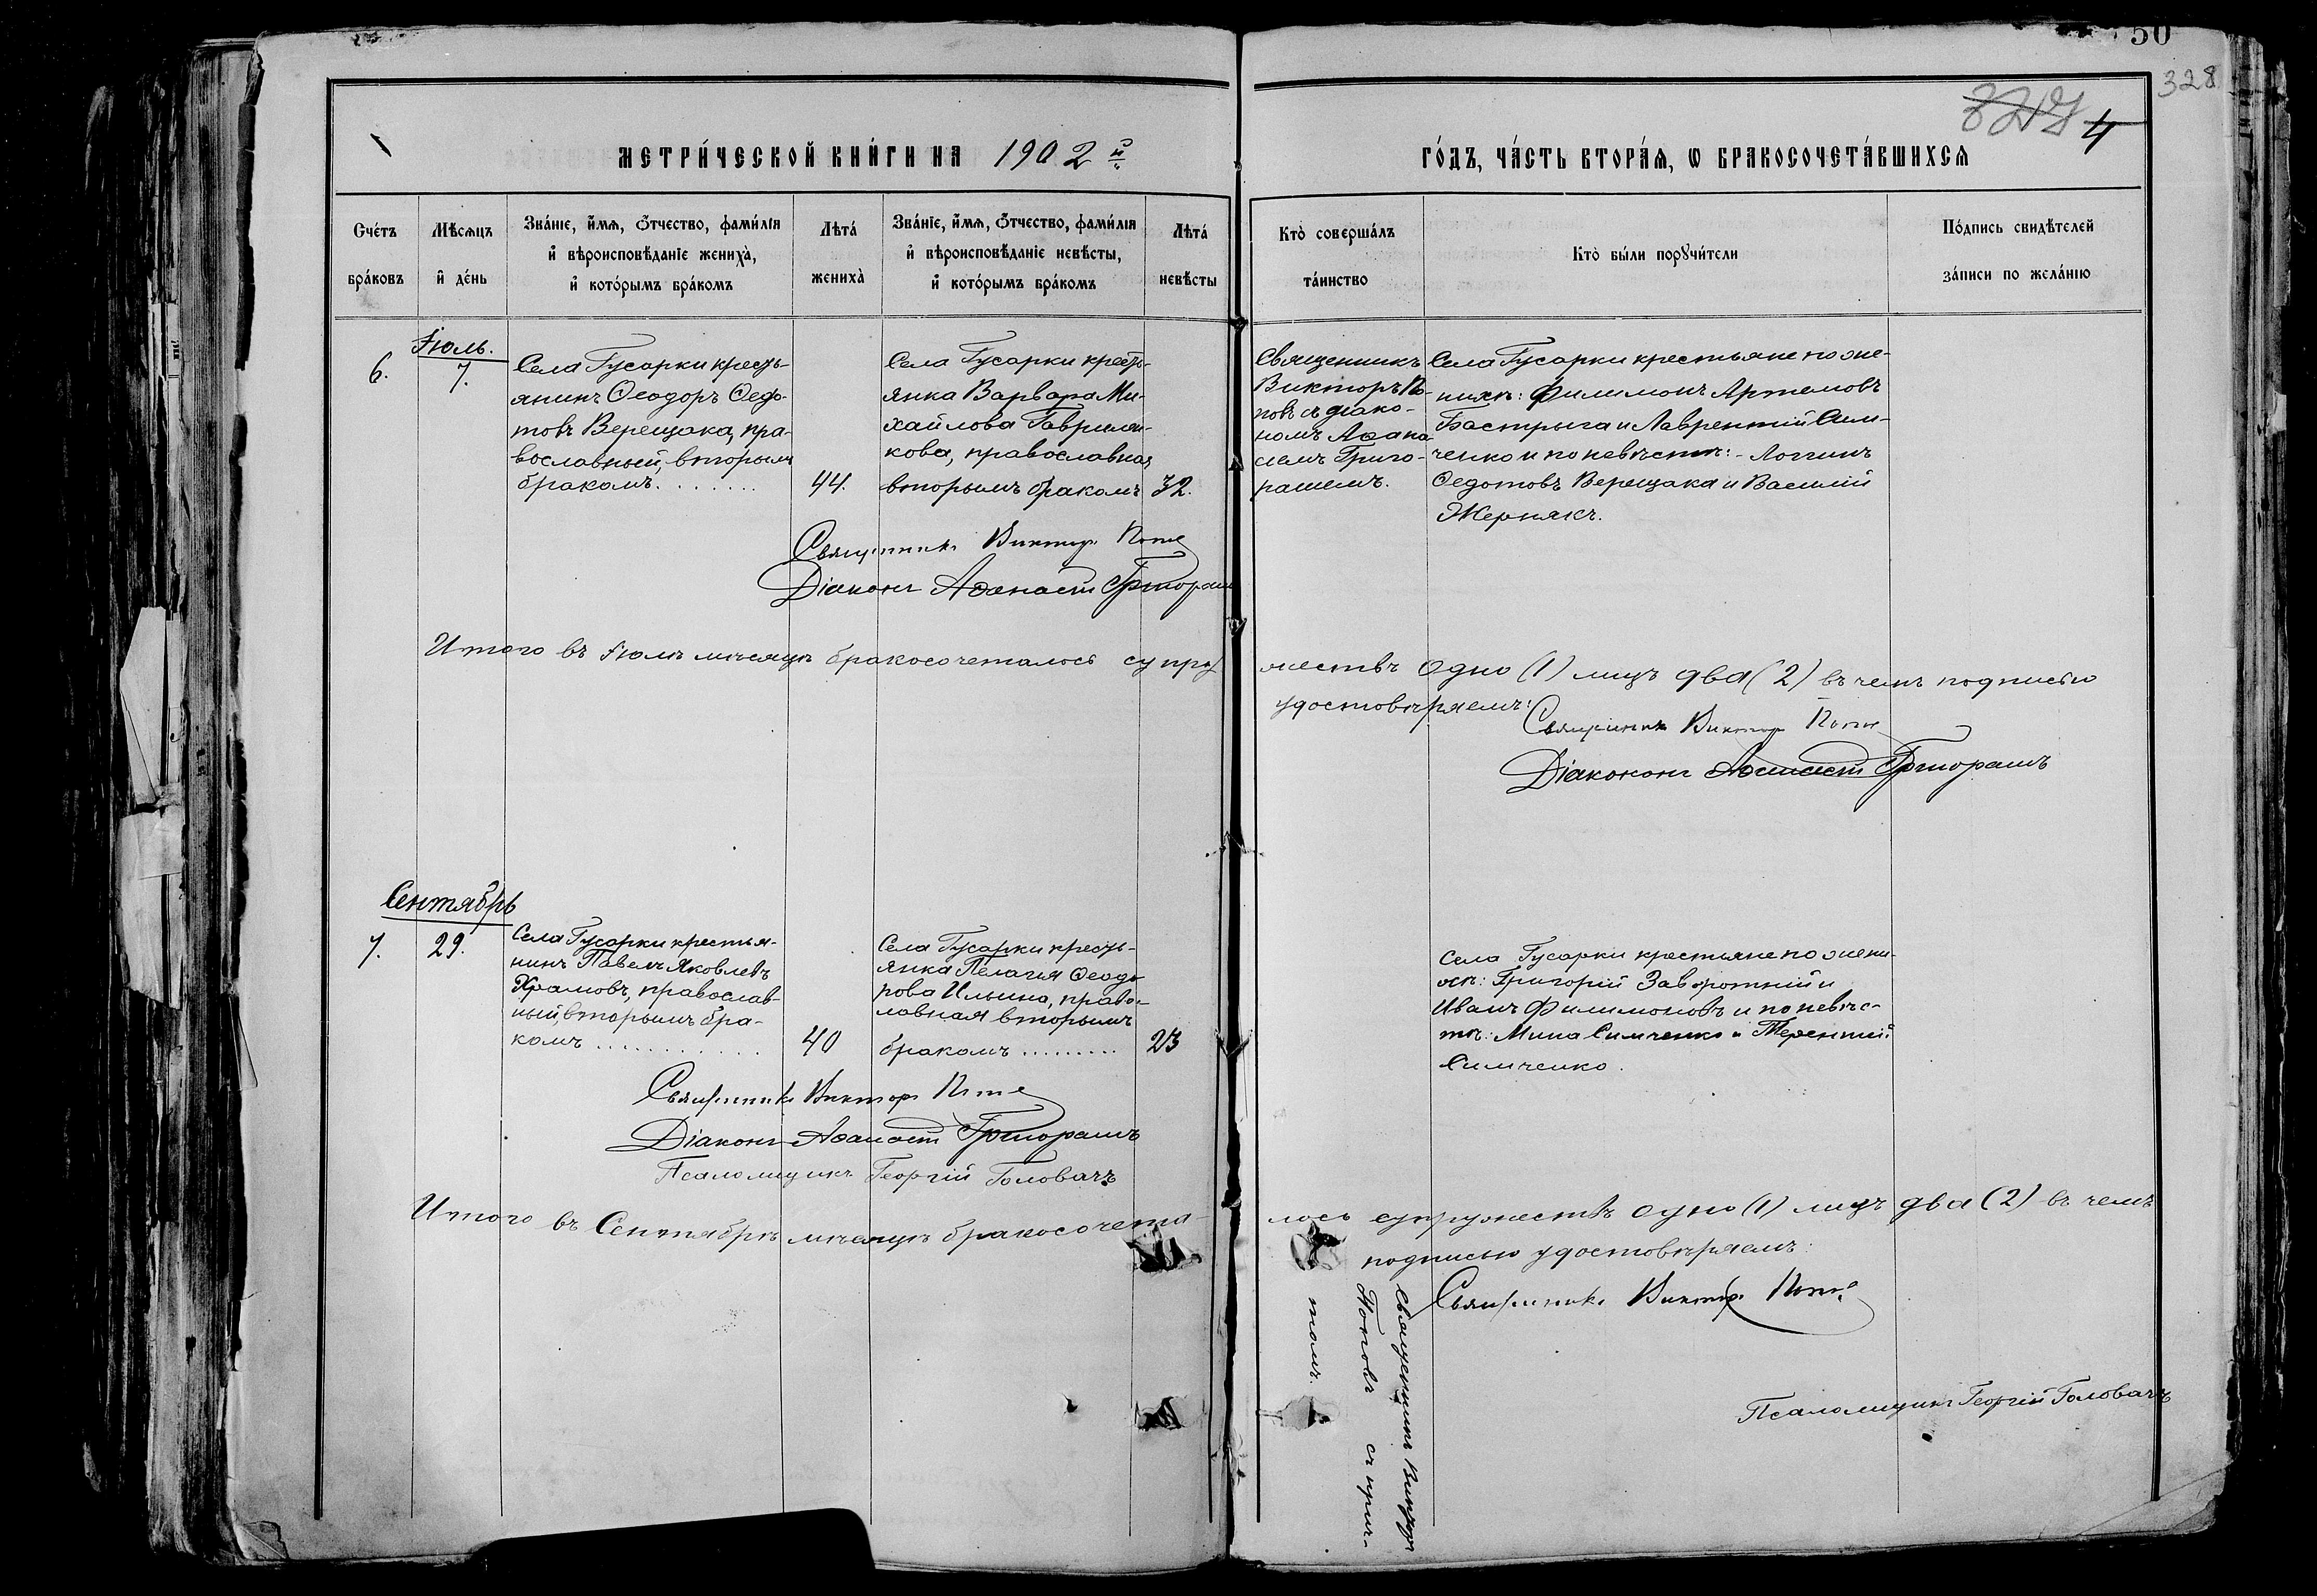 50
328
4
МЕТРИ́ЧЕСКОЙ КНИ́ГИ НА 1902 й
ГО́ДЪ, ЧА́СТЬ ВТОРА́Ѧ, Ѡ БРАКОСОЧЕТА́ВШИХСѦ
Сче́тъ
бра́ковъ
Мѣсѧцъ
и҆ де́нь
Зва́нїе, и҆́мѧ, ѻ҆́тчество, фами́лїѧ
и҆ вѣроисповѣ́данїе жениха̀,
и҆ кото́рымъ бра́комъ
Лѣта́
жениха̀
Зва́нїе, и҆́мѧ, ѻ҆́тчество, фами́лїѧ
и҆ вѣроисповѣ́данїе невѣ́сты,
и҆ кото́рымъ бра́комъ
Лѣта́
невѣ́сты
Кто̀ соверша́лъ
та́инство
Кто̀ бы́ли порꙋчи́тели
По́дпись свидѣ́телей
за́писи по жела́нїю
Іюль.
6.
7.
Села Гусарки кресть-
янинъ Ѳеодоръ Ѳедо-
товъ Верещака, пра-
вославный, вторымъ
бракомъ. . . . . . .
44.
Села Гусарки кресть-
янка Варвара Ми-
хайлова Гаврили-
кова, православная,
вторымъ бракомъ
32.
Священникъ
Викторъ По-
повъ съ діако-
номъ Аѳана-
сіемъ Григо-
рашемъ.
Села Гусарки крестьяне по же-
нихѣ: Филимонъ Артемовъ
Бастрыга и Лаврентій Сим-
ченко и по невѣстѣ: - Логгинъ
Ѳедотовъ Верещака и Василій
Жернякъ.
Священникъ Викторъ Поповъ
Діаконъ Аѳанасій Григорашъ
Итого въ Іюлѣ мѣсяцѣ бракосочеталось супру
жествъ одно (1) лицъ два (2) въ чемъ подписью
удостовѣряемъ:
Священникъ Викторъ Поповъ
Діаконъ Аѳанасій Григорашъ
Сентябрь
7.
29.
Села Гусарки крестья-
нинъ Павелъ Яковлевъ
Храмовъ, православ-
ный, вторымъ бра-
комъ . . . . . . . . . . . .
40
Села Гусарки кресть-
янка Пелагея Ѳеодо-
рова Ильина, право-
лавная вторымъ
бракомъ . . . . . . . . .
23
Священникъ Викторъ
Поповъ съ прич-
томъ.
Села Гусарки крестьяне по жени-
хѣ: Григорій Заворотній и
Иванъ Филимоновъ и по невѣс-
тѣ: Мина Симченко и Терентій
Симченко.
Священникъ Викторъ Поповъ
Діаконъ Аѳанасій Григорашъ
Псаломщикъ Георгій Головачъ
Итого въ Сентябрѣ мѣсяцѣ бракосочета-
лось супружествъ одно (1) лицъ два (2) въ чемъ
подписью удостовѣряемъ:
Священникъ Викторъ Поповъ
Псаломщикъ Георгій Головачъ